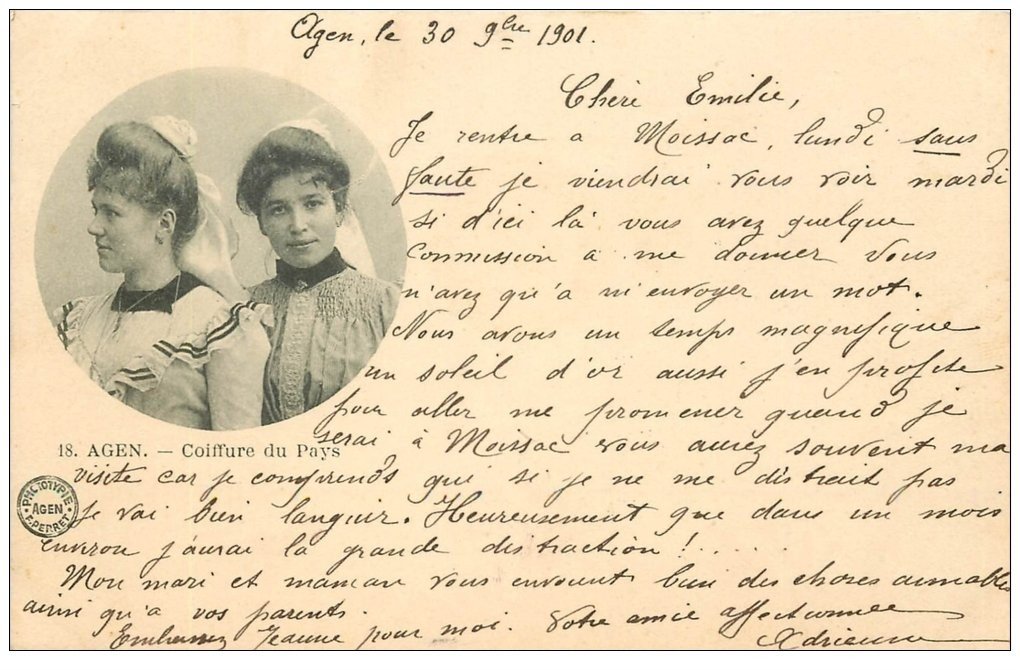 Agen, le 30 9bre 1901.
Chère Emilie,
Je rentre a Moissac, lundi sans
faute je viendrai vous voir mardi
si d'ici là vous avez quelque
commission a me donner vous
n'avez qu'a m'envoyer un mot.
Nous avons un temps magnifique
un soleil d'or aussi j'en profite
pour aller me promener quand je
serai à Moissac vous aurez souvent ma
visite car je comprends que si je ne me distrait pas
Je vai bien languir. Heureusement que dans un mois
environ j'aurai la grande distraction !.....
Mon mari et maman vous envoient bien des choses aimables
ainsi qu'a vos parents.
Embrassez Jeanne pour moi. Votre amie affectionnée
Adrienne
18. AGEN. — Coiffure du Pays
PHOTOTYPIE
AGEN
F. PERRET